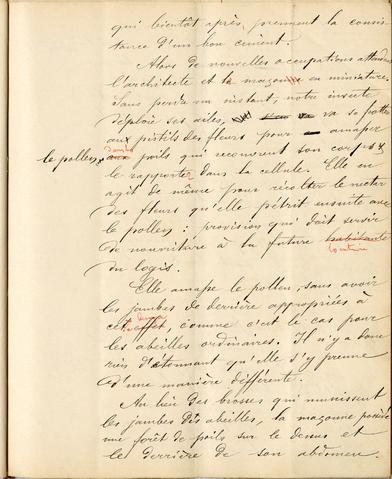 qui bientôt après, prennent la consis-
tance d'un bon ciment.
Alors de nouvelles occupations attendent
l'architecte et la maçonne en miniature.
Sans perdre un instant, notre insecte
déploie ses ailes, va se frotter
aux pistils des fleurs pour amasser
le pollen, dans poils qui recouvrent son corps &
le rapporter dans la cellule. Elle en
agit de même pour récolter le nectar
des fleurs qu'elle pétrit ensuite avec
le pollen : provision qui doit servir
de nourriture à la future habitante
du logis.
Elle amasse le pollen, sans avoir
les jambes de derrière appropriées à
cet effet, comme c'est le cas pour
les abeilles ordinaires. Il n'y a donc
rien d'étonnant qu'elle s'y prenne
d'une manière différente.
Au lieu des brosses qui munissent
les jambes des abeilles, la maçonne possède
une forêt de poils sur le dessus et
le derrière de son abdomen.